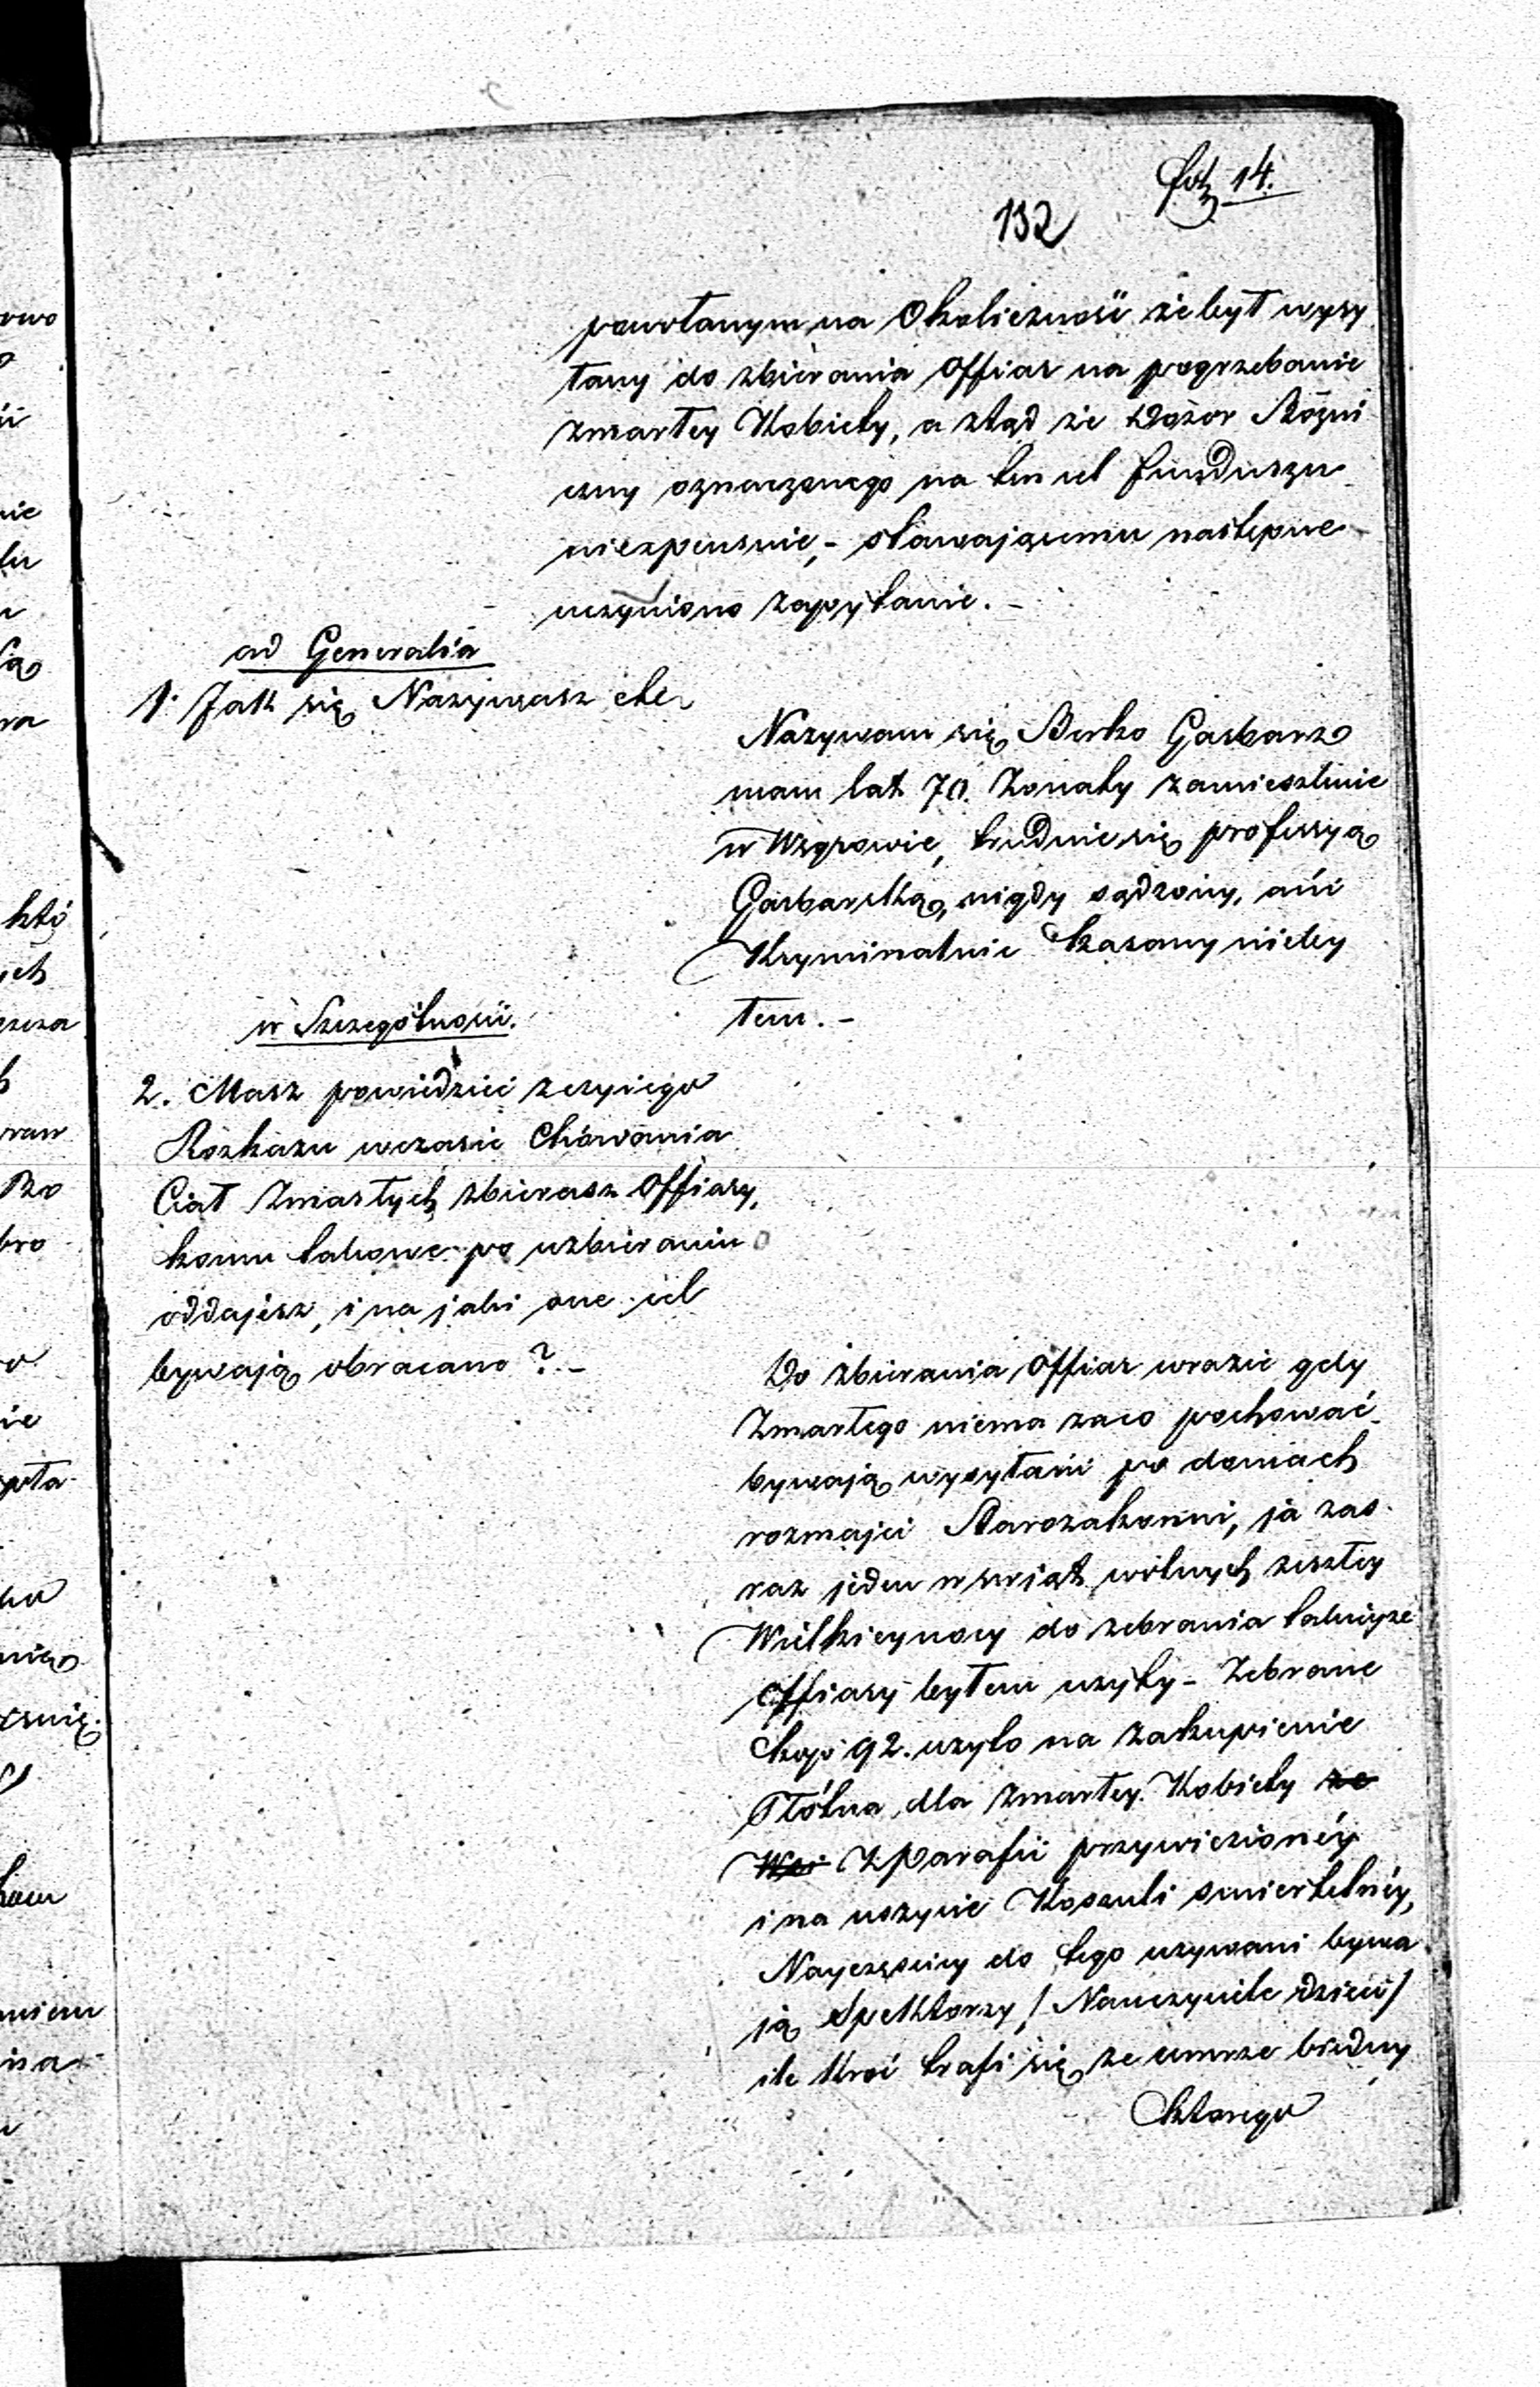 fol. 14.
132
powołanym na Okoliczność że był wysy
łany do zbierania Offiar na pogrzebanie
zmarłey Kobiety, a ztąd że Dozor Bóżni
czny oznaczonego na ten cel funduszu
niezpensuie, - stawającemu nastepne
uczyniono zapytanie. -
ad Generalia
1. Jak się Nazywasz etc.
Nazywam się Berko Garbarz
mam lat 70. Zonaty zamieszkuie
w Węgrowie, trudnie się professyą
Garbarską, nigdy sądzony, ani
Kryminalnie karany niebył
tem. -
w Szczegółności.
2. Masz powiedzieć z czyiego
Rozkazu wczasie Chowania
Ciał Zmarłych zbierasz Offiary,
komu takowe po uzbieraniu
oddajesz, i na jaki one cel
bywają obracano ? -
Do zbierania Offiar wrazie gdy
Zmarłego niema zaco pochować
bywają wysyłani po domach
rozmajci Starozakonni, ja zas
raz jeden w swiąt wolnych zeszłey
Wielkieynocy do zebrania takieyże
Offiary byłem użyty - Zebrane
kop 92. użyto na zakupienie
Płótna dla zmarłey Kobiety ze
Wsi z Parafii przywiezionéy
i na uszycie Koszuli smiertelnéy,
Nayczęściey do tego uzywani bywa
ją Spektorzy / Nauczyciele dzieci /
ile kroć trafi się ze umrze biedny
ktorego